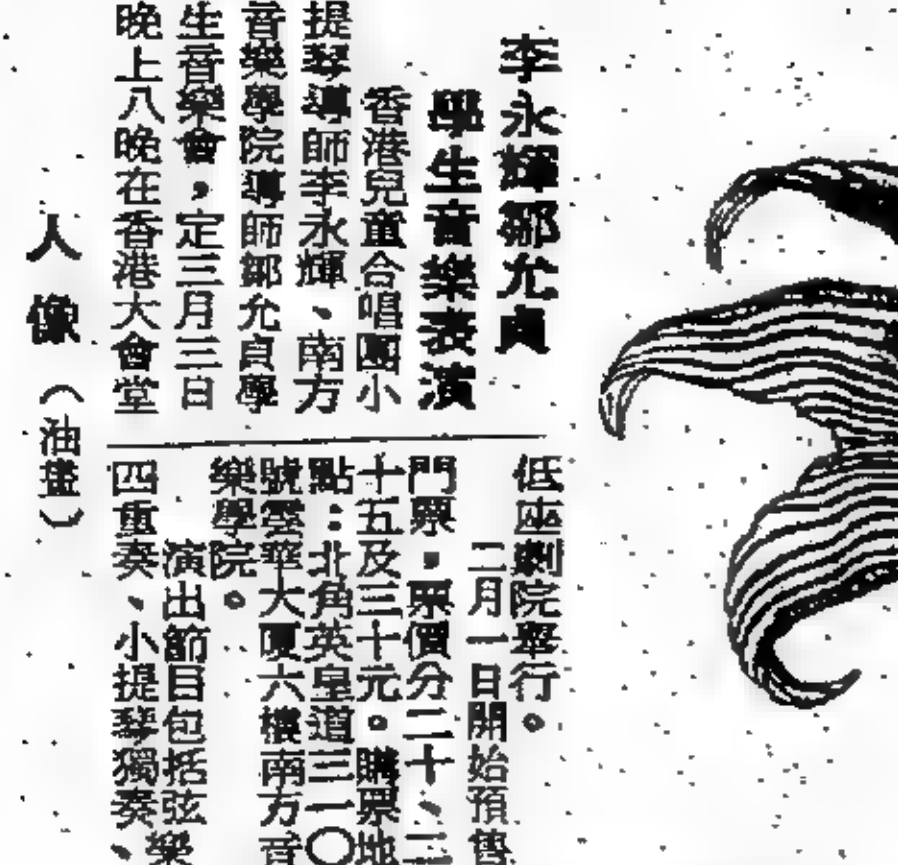 李永輝鄒允貞
學生音樂表演
香港兒童合唱團小
提琴導師李永輝、南方
音樂學院導師鄒允貞學
生音樂會，定三月三日
晚上八晚在香港大會堂
低座劇院舉行。
二月一日開始預售
門票，票價分二十、二
十五及三十元。購票地
點：北角英皇道三一〇
號雲華大廈六樓南方音
樂學院。
演出節目包括弦樂
四重奏、小提琴獨奏、
人像（油畫）